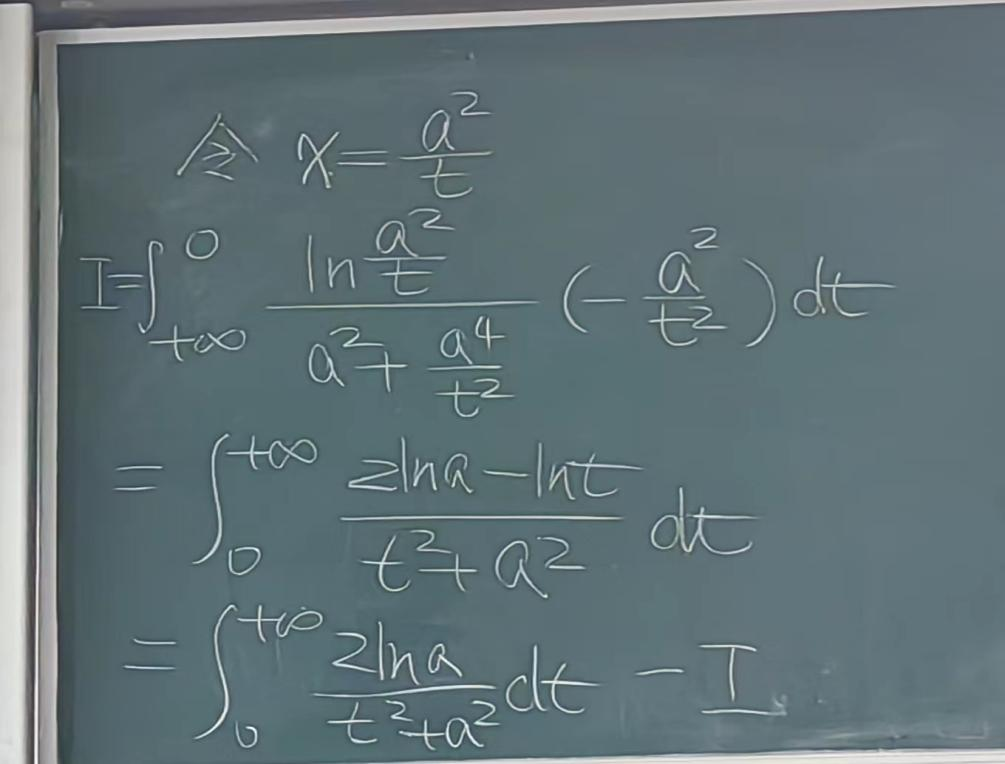 令 x = a²/t
I = ∫_{+∞}^{0} (ln(a²/t))/(a² + a⁴/t²) (−a²/t²) dt
= ∫_{0}^{+∞} (2lna − lnt)/(t² + a²) dt
= ∫_{0}^{+∞} (2lna)/(t² + a²) dt − I